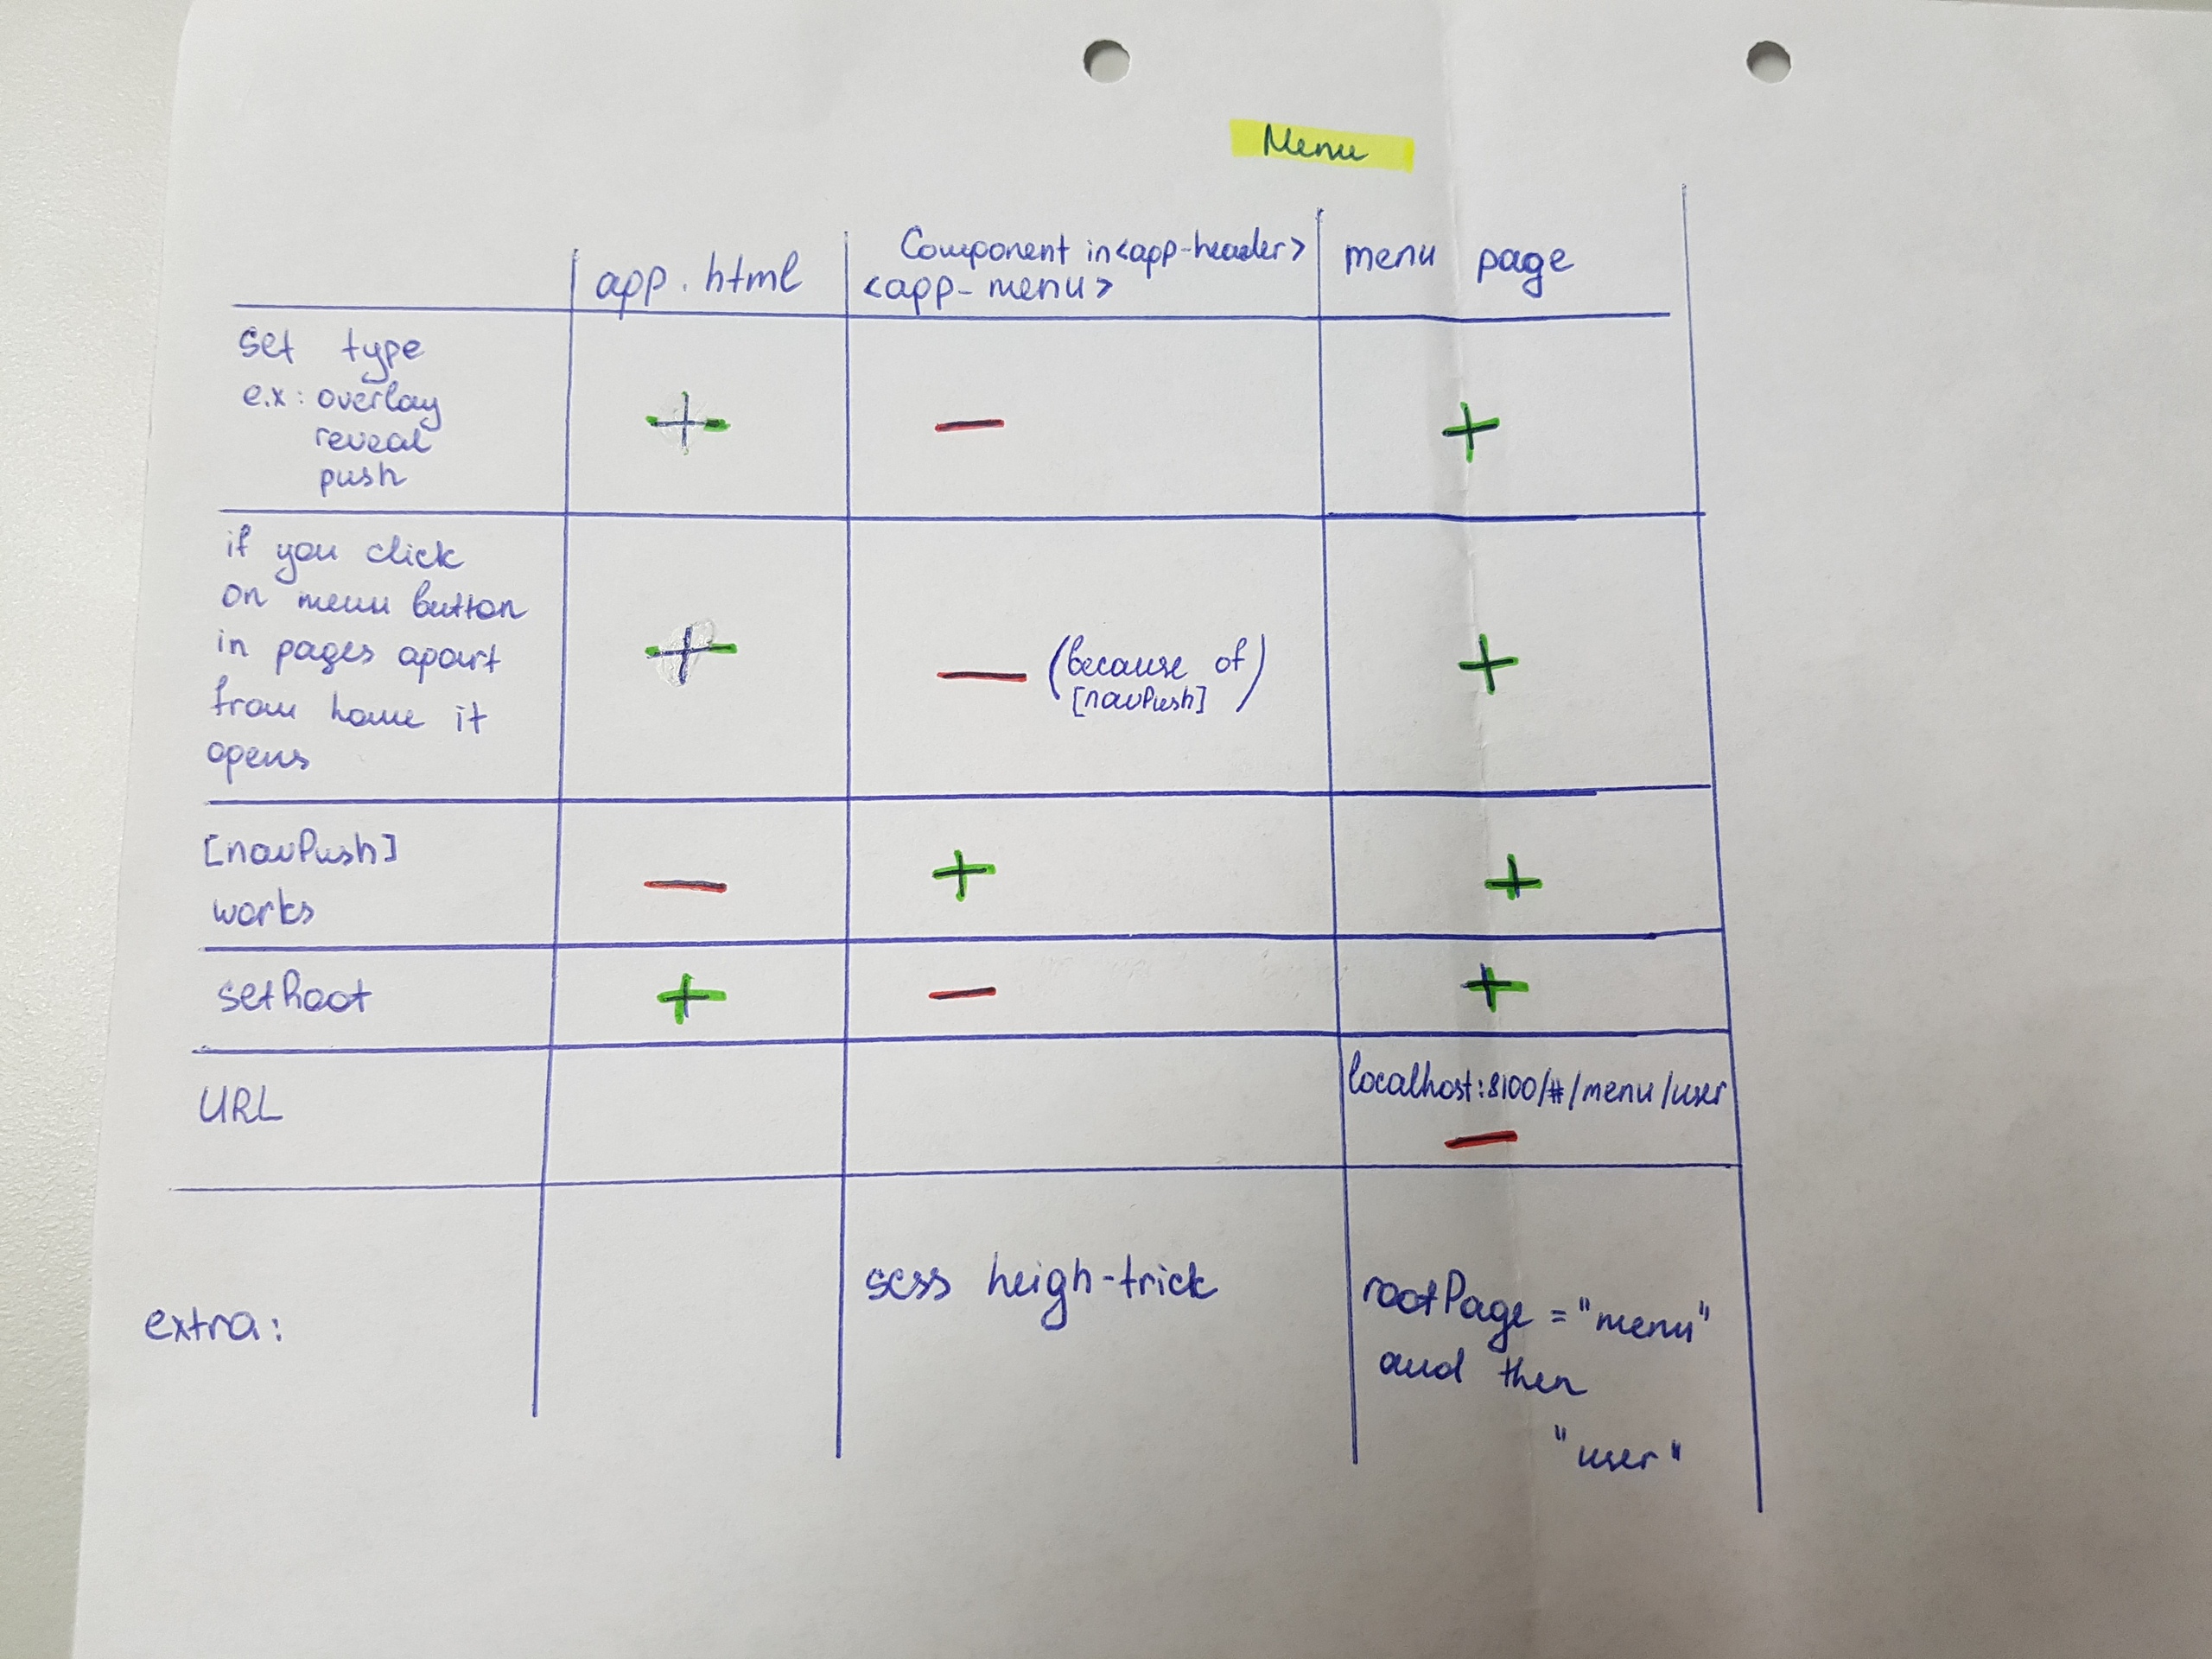 Menu
app.html
Component in <app-header>
<app-menu>
menu page
set type
e.x: overlay
reveal
push
+
—
+
if you click
on menu button
in pages apart
from home it
opens
+
— (because of
[navPush])
+
[navPush]
works
—
+
+
setRoot
+
—
+
URL
localhost:8100/#/menu/user
—
extra:
scss heigh-trick
rootPage = "menu"
and then
"user"